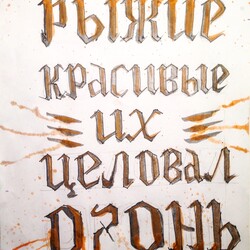 РЫЖИЕ
красивые
их
целовал
огонь